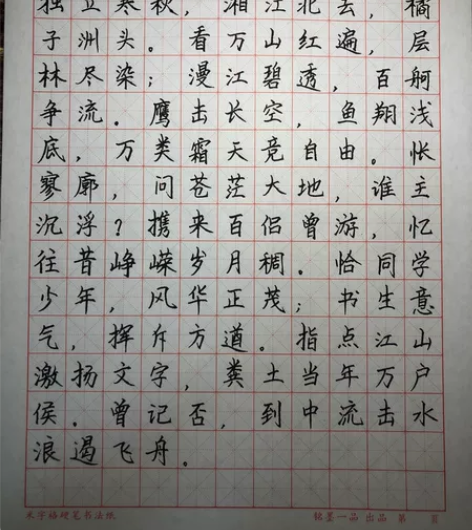 独立寒秋，湘江北去，橘
子洲头。看万山红遍，层
林尽染；漫江碧透，百舸
争流．鹰击长空，鱼翔浅
底，万类霜天竞自由。怅
寥廓，问苍茫大地，谁主
沉浮？携来百侣曾游，忆
往昔峥嵘岁月稠．恰同学
少年，风华正茂；书生意
气，挥斥方遒。指点江山
激扬文字，粪土当年万户
侯．曾记否，到中流击水
浪遏飞舟。
米字格硬笔书法纸
翰墨一品 出品 第 页